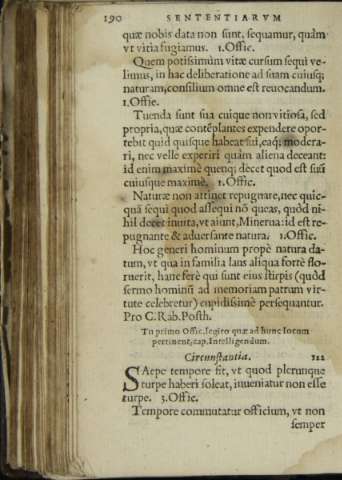 190 SENTENTIARVM
quæ nobis data non sunt, sequamur, quàm
vt vitia fugiamus. 1.Offic.
Quem potissimùm vitæ cursum sequi ve-
limus, in hac deliberatione ad suam cuiusq;
naturam, consilium omne est reuocandum.
1.Offic.
Tuenda sunt sua cuique non vitiosa, sed
propria, quæ contēplantes expendere opor-
tebit quid quisque habeat sui, eaq; modera-
ri, nec velle experiri quàm aliena deceant:
id enim maximè quenq; decet quod est suū
cuiusque maximè. 1.Offic.
Naturæ non attinet repugnare, nec quic-
quā sequi quod assequi nō queas, quòd ni-
hil decet inuita, vt aiunt, Minerua: id est re-
pugnante & aduersante natura. 1.Offic.
Hoc generi hominum propè natura da-
tum, vt qua in familia laus aliqua fortè flo-
ruerit, hanc ferè qui sunt eius stirpis (quòd
sermo hominū ad memoriam patrum vir-
tute celebretur) cupidissimè persequantur.
Pro C. Rab. Posth.
Tu primo Offic. legito quæ ad hunc locum
pertinent, cap. Intelligendum.
Circunstantia. 122
SAepe tempore fit, vt quod plerunque
turpe haberi soleat, inueniatur non esse
turpe. 3.Offic.
Tempore commutatur officium, vt non
semper